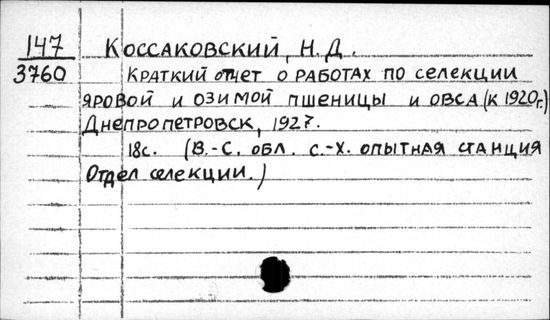 147
3760
Коссаковский, Н. Д.
Краткий отчет о работах по селекции
яровой и озимой пшеницы и овса (к 1920 г.)
Днепропетровск, 1927.
18с. (В.-С. обл. с.-х. опытная станция
Отдел селекции.)